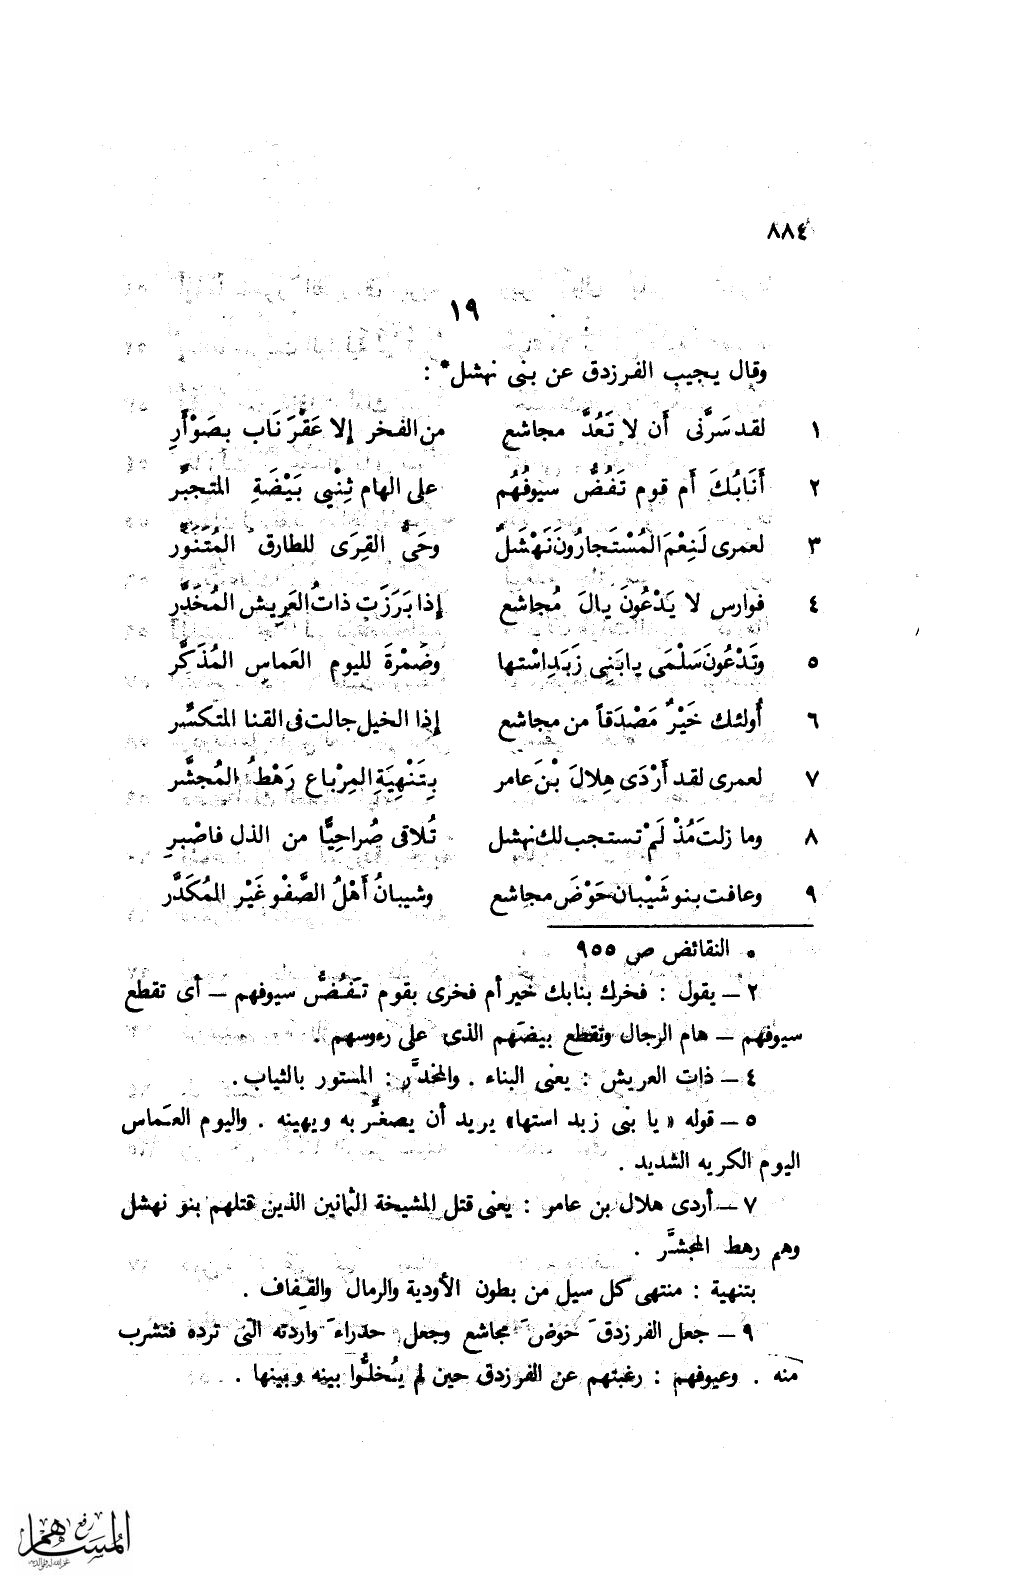 ٨٨٤
١٩
وقال يجيب الفرزدق عن بنى نهشل* :
١ لقد سَرَّنى أَن لا تَعُدَّ مجاشع من الفخر إلا عَقْرَ نَاب بصَوْأَرِ
٢ أَنَابُكَ أَم قوم تَفُضُّ سيوفُهُم على الهام ثِنْيِ بَيْضَةِ المتجبِّر
٣ لعمرى لَنِعْمَ المُسْتَجارُونَ نَهْشَلٌ وحَىُّ القِرَى للطارق المُتَنَوِّر
٤ فوارس لا يَدْعُونَ يالَ مُجاشع إذا بَرَزَت ذاتُ العَرِيش المُخَدَّر
٥ وتَدْعُونَ سَلْمَى يابَنِى زَبَدِ اسْتها وضَمْرةَ لليوم العَماسِ المُذَكِّر
٦ أُولئك خَيْرٌ مَصْدَقاً من مجاشع إذا الخيل جالت فى القنا المتكسِّر
٧ لعمرى لقد أَرْدَى هِلالَ بْنَ عامر بِتَنْهِيَةِ المِرْباع رَهْطُ المُجشَّر
٨ وما زلتَ مُذْ لَمْ تستجب لك نهشل تُلاقى صُراحِيًّا من الذل فاصْبرِ
٩ وعافت بنو شَيْبان حَوْضَ مجاشع وشيبانُ أَهْلُ الصَّفْو غَيْر المُكَدَّر
* النقائض ص ٩٥٥
٢ – يقول : فخرك بنابك خير أم فخرى بقوم تَفُضُّ سيوفهم – أى تقطع
سيوفهم – هام الرجال وتقطع بيضَهم الذى على رءوسهم .
٤ – ذات العريش : يعنى البناء . والمخدَّر : المستور بالثياب .
٥ – قوله « يا بنى زبد استها» يريد أن يصغِّر به ويهينه . واليوم العَماس
اليوم الكريه الشديد .
٧ – أردى هلال بن عامر : يعنى قتل المشيخة الثمانين الذين قتلهم بنو نهشل
وهم رهط المجشَّر .
بتنهية : منتهى كل سيل من بطون الأودية والرمال والقِفاف .
٩ – جعل الفرزدقَ حوضَ مجاشع وجعل حدراءَ واردته التى ترده فتشرب
منه . وعيوفهم : رغبتهم عن الفرزدق حين لم يُخلُّوا بينه وبينها .
رفع
المساهم